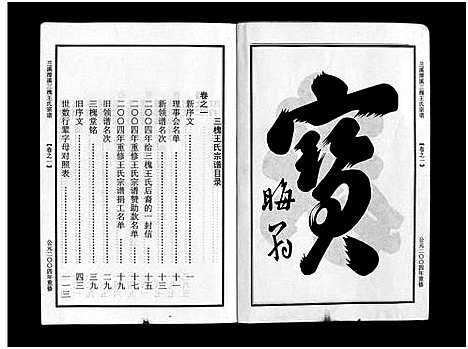 兰溪潭溪三槐王氏宗谱
【卷之一】
公元二〇〇四年重修
寶
晦翁
三槐王氏宗谱目录
卷之一
新序文 一
理事会名单 十一
新领谱名次 十三
二〇〇四年给三槐王氏后裔的一封信 十五
二〇〇四年重修王氏宗谱赞助款名单 十七
二〇〇四年重修王氏宗谱捐工名单 十九
旧领谱名次 二九
三槐堂铭 三九
旧序文 四三
世数行辈字母对照表 一一三
【卷之一】
公元二〇〇四年重修